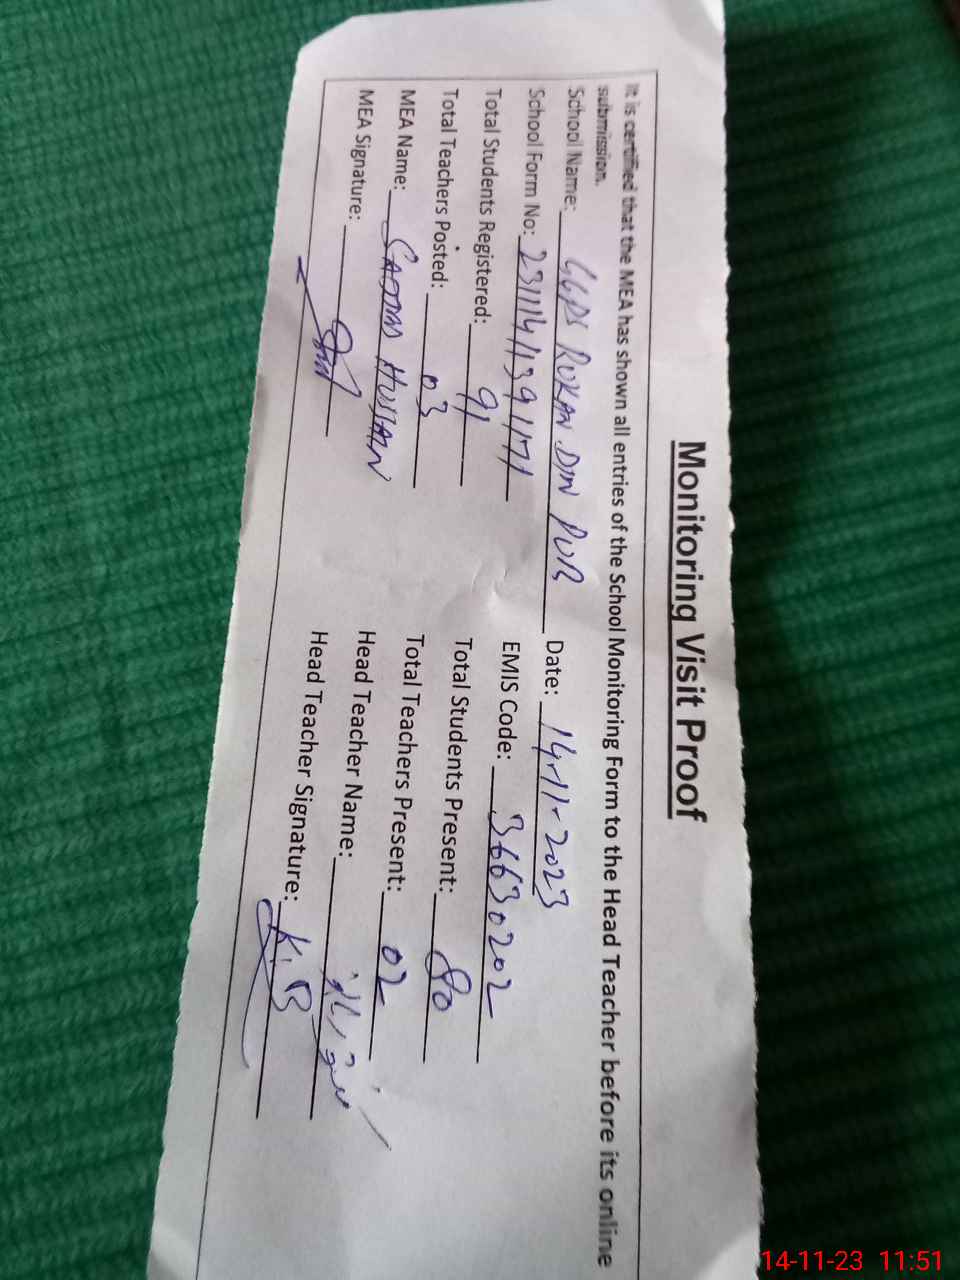 Monitoring Visit Proof
It is certified that the MEA has shown all entries of the School Monitoring Form to the Head Teacher before its online
submission.
School Name: GGPS RUKAN DIN PUR Date: 14-11-2023
School Form No: EMIS Code: 36630202
Total Students Registered: 91 Total Students Present: 80
Total Teachers Posted: 03 Total Teachers Present: 02
MEA Name: HUSSAIN Head Teacher Name:
MEA Signature: Head Teacher Signature: K.B
14-11-23 11:51